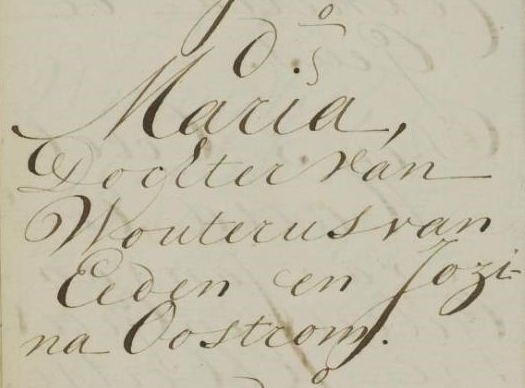 Maria,
Dogter van
Wouterus van
Eeden en Jozi-
na Oostrom.